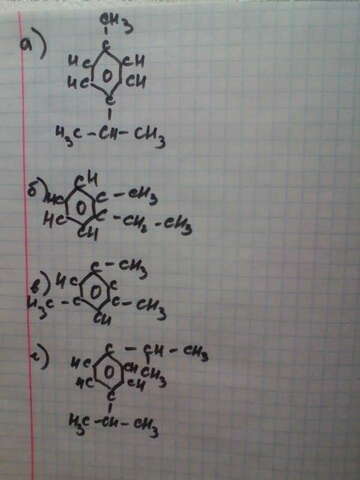 а) CH₃
C
HC CH
HC CH
C
H₃C – CH – CH₃
б) CH
HC C – CH₃
HC C – CH₂ – CH₃
CH
в) C – CH₃
HC C
H₃C – C C – CH₃
CH
г) C – CH – CH₃
HC CH CH₃
HC CH
C
H₃C – CH – CH₃